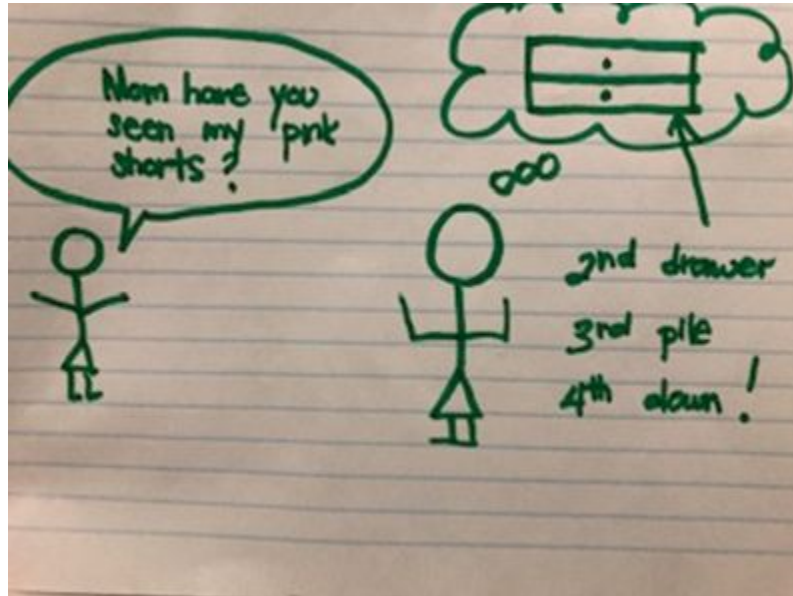 Mom have you
seen my pink
shorts?
2nd drawer
3rd pile
4th down!